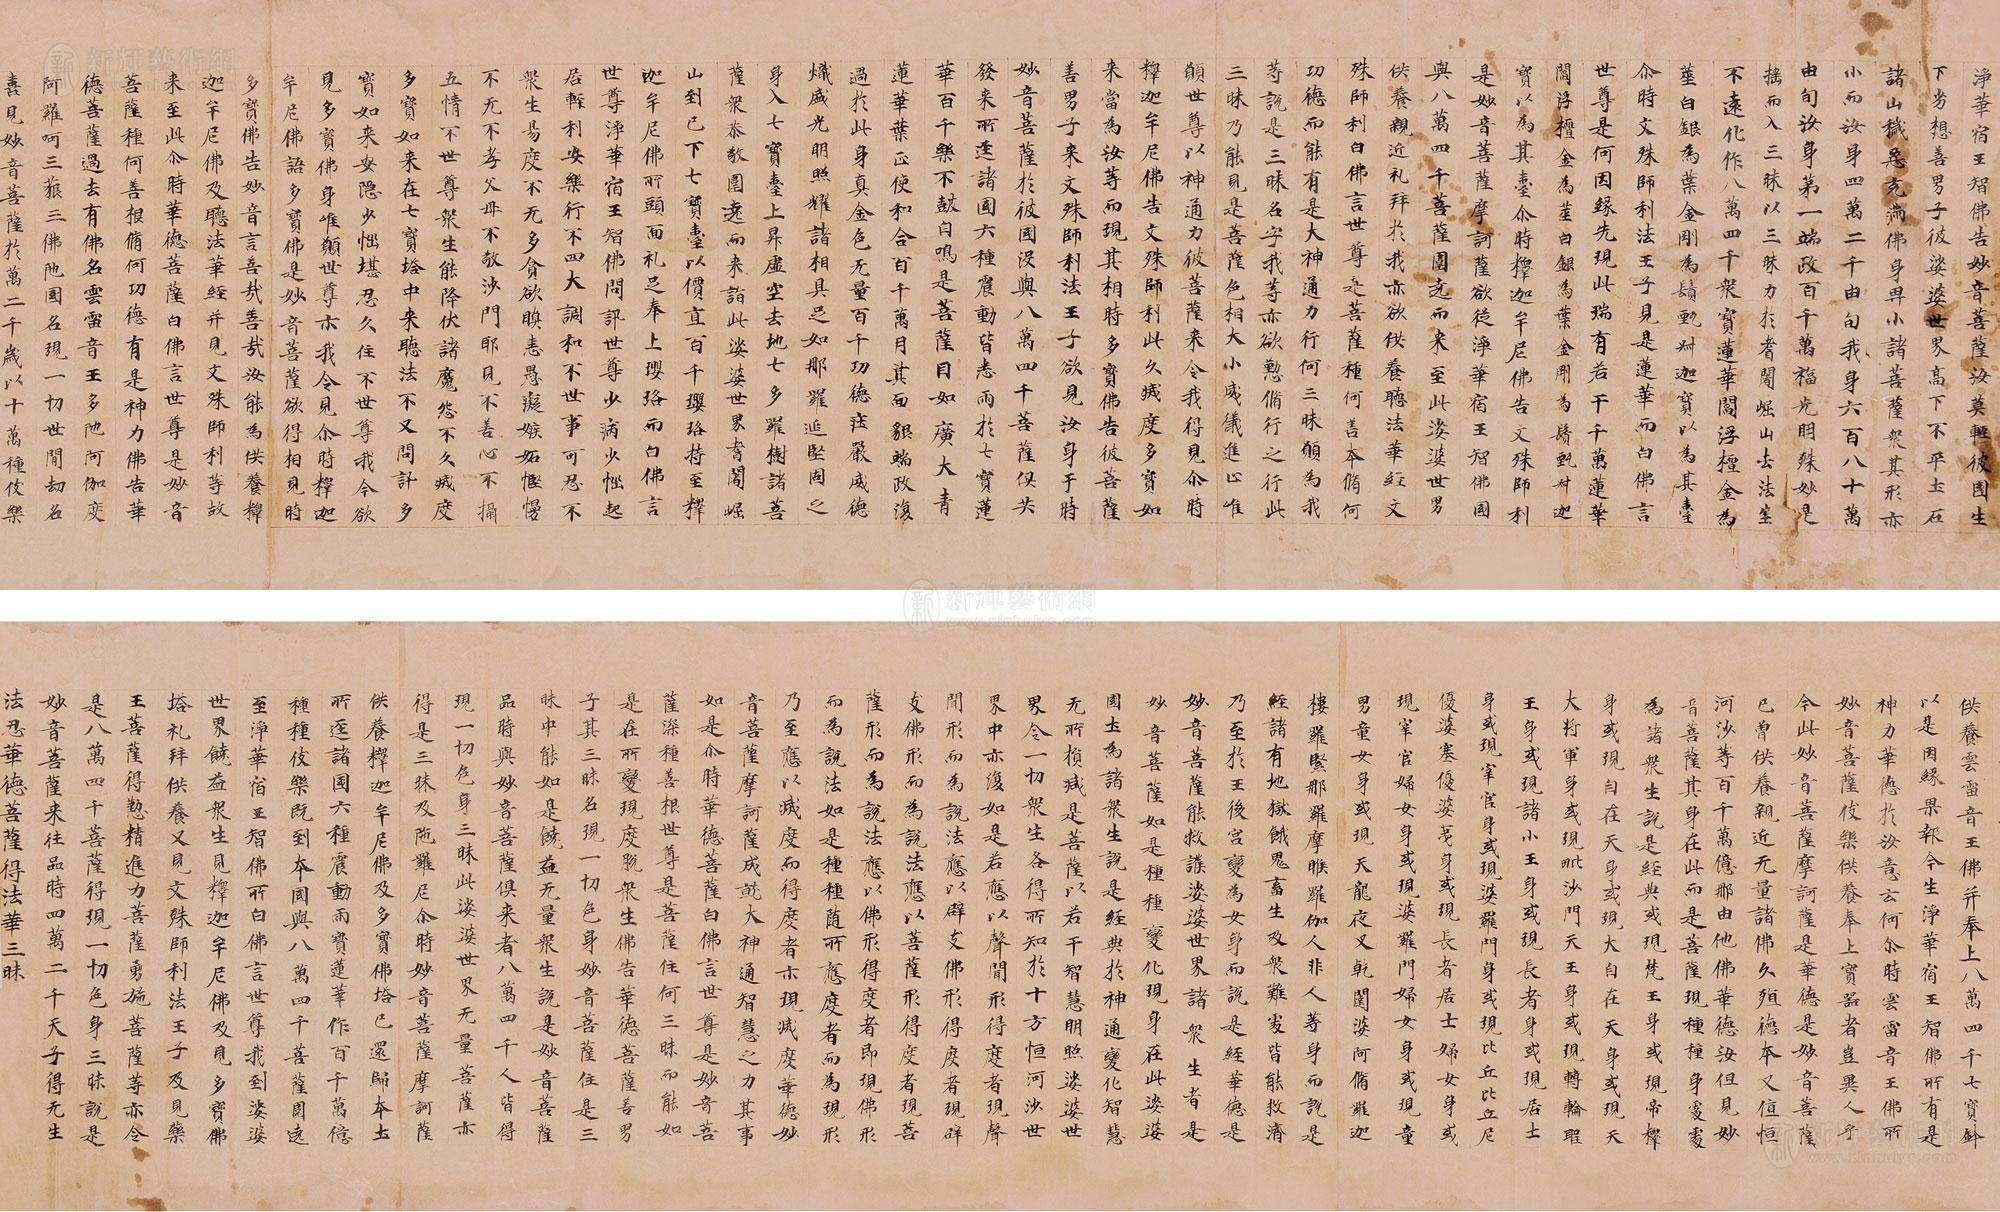 淨華宿王智佛告妙音菩薩汝莫輕彼國生
下劣想善男子彼娑婆世界高下不平土石
諸山穢惡充滿佛身卑小諸菩薩衆其形亦
小而汝身四萬二千由旬我身六百八十萬
由旬汝身第一端政百千萬福光明殊妙是
搖而入三昧以三昧力於耆闍崛山去法座
不遠化作八萬四千衆寶蓮華閻浮檀金為
莖白銀為葉金剛為鬚甄叔迦寶以為其臺
尒時文殊師利法王子見是蓮華而白佛言
世尊是何因緣先現此瑞有若干千萬蓮華
閻浮檀金為莖白銀為葉金剛為鬚甄叔迦
寶以為其臺尒時釋迦牟尼佛告文殊師利
是妙音菩薩摩訶薩欲從淨華宿王智佛國
與八萬四千菩薩圍遶而來至此娑婆世界
供養親近礼拜於我亦欲供養聽法華經文
殊師利白佛言世尊是菩薩種何善本脩何
功德而能有是大神通力行何三昧願為我
等說是三昧名字我等亦欲懃脩行之行此
三昧乃能見是菩薩色相大小威儀進止唯
願世尊以神通力彼菩薩來令我得見尒時
釋迦牟尼佛告文殊師利此久滅度多寶如
來當為汝等而現其相時多寶佛告彼菩薩
善男子來文殊師利法王子欲見汝身于時
妙音菩薩於彼國沒與八萬四千菩薩俱共
發來所逕諸國六種震動皆悉雨於七寶蓮
華百千樂不鼓自鳴是菩薩目如廣大青
蓮華葉正使和合百千萬月其面貌端政復
過於此身真金色无量百千功德莊嚴威德
熾盛光明照耀諸相具足如那羅延堅固之
身入七寶臺上昇虛空去地七多羅樹諸菩
薩衆恭敬圍遶而來詣此娑婆世界耆闍崛
山到已下七寶臺以價直百千瓔珞持至釋
迦牟尼佛所頭面礼足奉上瓔珞而白佛言
世尊淨華宿王智佛問訊世尊少病少惱起
居輕利安樂行不四大調和不世事可忍不
衆生易度不无多貪欲瞋恚愚癡嫉妬慳慢
不无不孝父母不敬沙門耶見不善心不攝
五情不世尊衆生能降伏諸魔怨不久滅度
多寶如來在七寶塔中來聽法不又問訊多
寶如來安隱少惱堪忍久住不世尊我今欲
見多寶佛身唯願世尊示我令見尒時釋迦
牟尼佛語多寶佛是妙音菩薩欲得相見時
多寶佛告妙音言善哉善哉汝能為供養釋
迦牟尼佛及聽法華經并見文殊師利等故
來至此尒時華德菩薩白佛言世尊是妙音
菩薩種何善根脩何功德有是神力佛告華
德菩薩過去有佛名雲雷音王多陁阿伽度
阿羅呵三藐三佛陁國名現一切世間劫名
喜見妙音菩薩於萬二千歲以十萬種伎樂
供養雲雷音王佛并奉上八萬四千七寶鉢
以是因緣果報今生淨華宿王智佛所有是
神力華德於汝意云何尒時雲雷音王佛所
妙音菩薩伎樂供養奉上寶器者豈異人乎
今此妙音菩薩摩訶薩是華德是妙音菩薩
已曾供養親近无量諸佛久殖德本又值恒
河沙等百千萬億那由他佛華德汝但見妙
音菩薩其身在此而是菩薩現種種身處處
為諸衆生說是經典或現梵王身或現帝釋
身或現自在天身或現大自在天身或現天
大將軍身或現毗沙門天王身或現轉輪聖
王身或現諸小王身或現長者身或現居士
身或現宰官身或現婆羅門身或現比丘比丘尼
優婆塞優婆夷身或現長者居士婦女身或
現宰官婦女身或現婆羅門婦女身或現童
男童女身或現天龍夜叉乾闥婆阿脩羅迦
樓羅緊那羅摩睺羅伽人非人等身而說是
經諸有地獄餓鬼畜生及衆難處皆能救濟
乃至於王後宮變為女身而說是經華德是
妙音菩薩能救護娑婆世界諸衆生者是
妙音菩薩如是種種變化現身在此娑婆
國土為諸衆生說是經典於神通變化智慧
无所損減是菩薩以若干智慧明照娑婆世
界令一切衆生各得所知於十方恒河沙世
界中亦復如是若應以聲聞形得度者現聲
聞形而為說法應以辟支佛形得度者現辟
支佛形而為說法應以菩薩形得度者現菩
薩形而為說法應以佛形得度者即現佛形
而為說法如是種種隨所應度者而為現形
乃至應以滅度而得度者示現滅度華德妙
音菩薩摩訶薩成就大神通智慧之力其事
如是尒時華德菩薩白佛言世尊是妙音菩
薩深種善根世尊是菩薩住何三昧而能如
是在所變現度脫衆生佛告華德菩薩善男
子其三昧名現一切色身妙音菩薩住是三
昧中能如是饒益无量衆生說是妙音菩薩
品時與妙音菩薩俱來者八萬四千人皆得
現一切色身三昧此娑婆世界无量菩薩亦
得是三昧及陁羅尼尒時妙音菩薩摩訶薩
供養釋迦牟尼佛及多寶佛塔已還歸本土
所逕諸國六種震動雨寶蓮華作百千萬億
種種伎樂既到本國與八萬四千菩薩圍遶
至淨華宿王智佛所白佛言世尊我到娑婆
世界饒益衆生見釋迦牟尼佛及見多寶佛
塔礼拜供養又見文殊師利法王子及見藥
王菩薩得懃精進力菩薩勇施菩薩等亦令
是八萬四千菩薩得現一切色身三昧說是
妙音菩薩來往品時四萬二千天子得无生
法忍華德菩薩得法華三昧